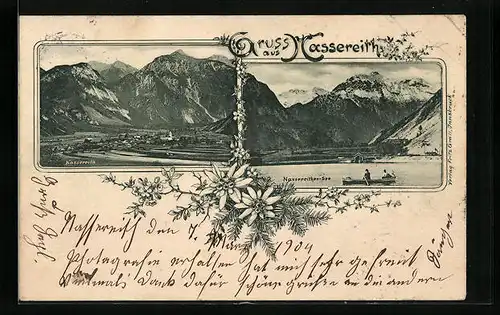 Gruss aus Nassereith
Nassereith
Nassereither-See
Verlag Fritz Gratl, Innsbruck
Nassereith den 7. März 1904
Photografie erhalten hat mich sehr gefreut
Vielmals Dank dafür schöne Grüße an die andern